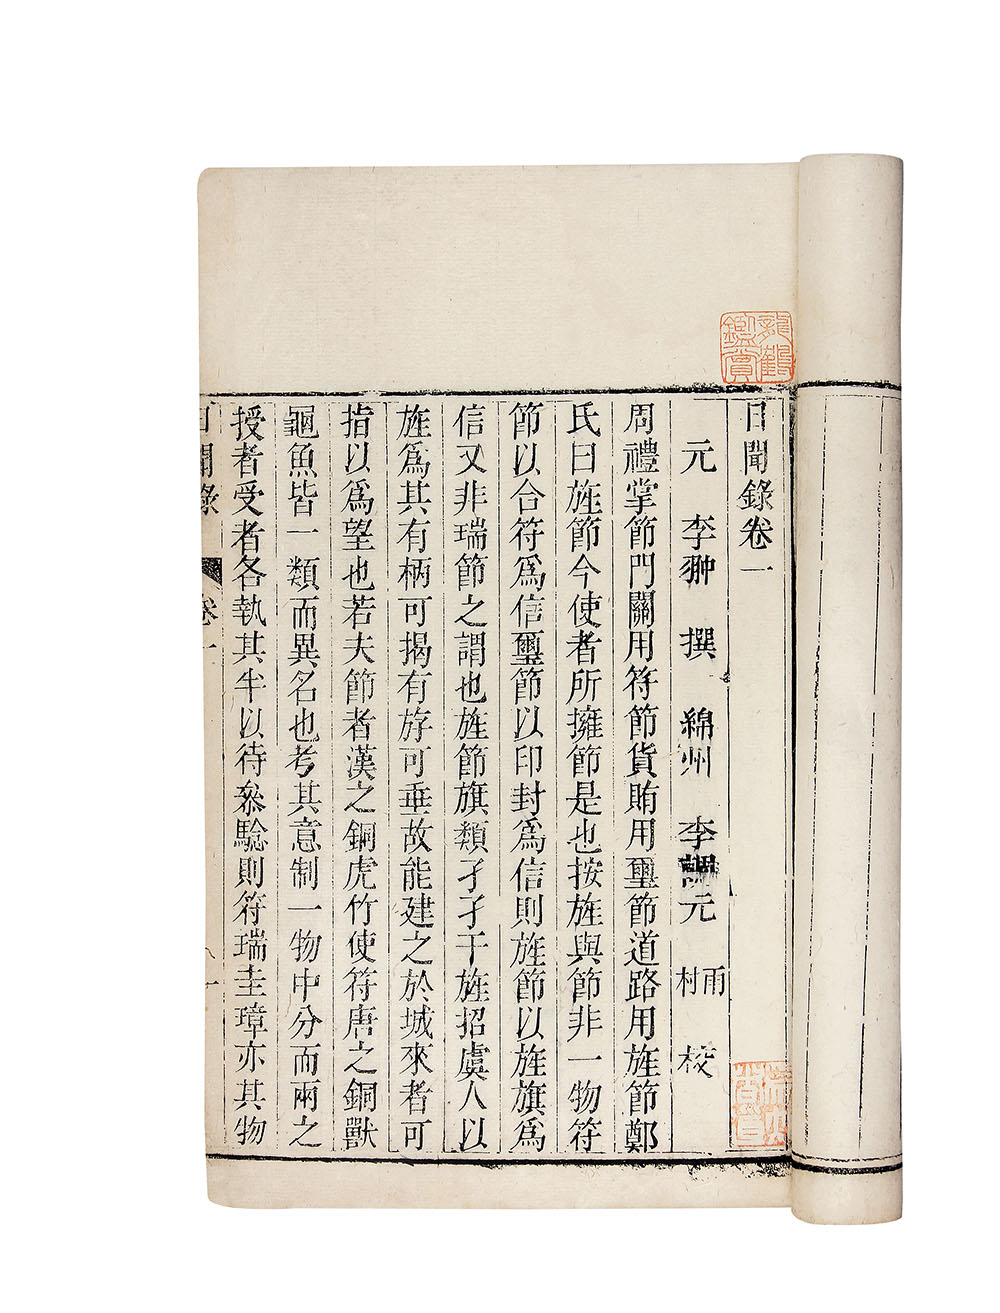 龍鶴鑑賞
日聞錄卷一
元 李翀 撰 綿州 李調元 雨村 校
周禮掌節門關用符節貨賄用璽節道路用旌節鄭
氏曰旌節今使者所擁節是也按旌與節非一物符
節以合符爲信璽節以印封爲信則旌節以旌旗爲
信又非瑞節之謂也旌節旗類孑孑干旌招虞人以
旌爲其有柄可揭有斿可垂故能建之於城來者可
指以爲望也若夫節者漢之銅虎竹使符唐之銅獸
龜魚皆一類而異名也考其意制一物中分而兩之
授者受者各執其半以待叅騐則符瑞圭璋亦其物
日聞錄 卷一 一